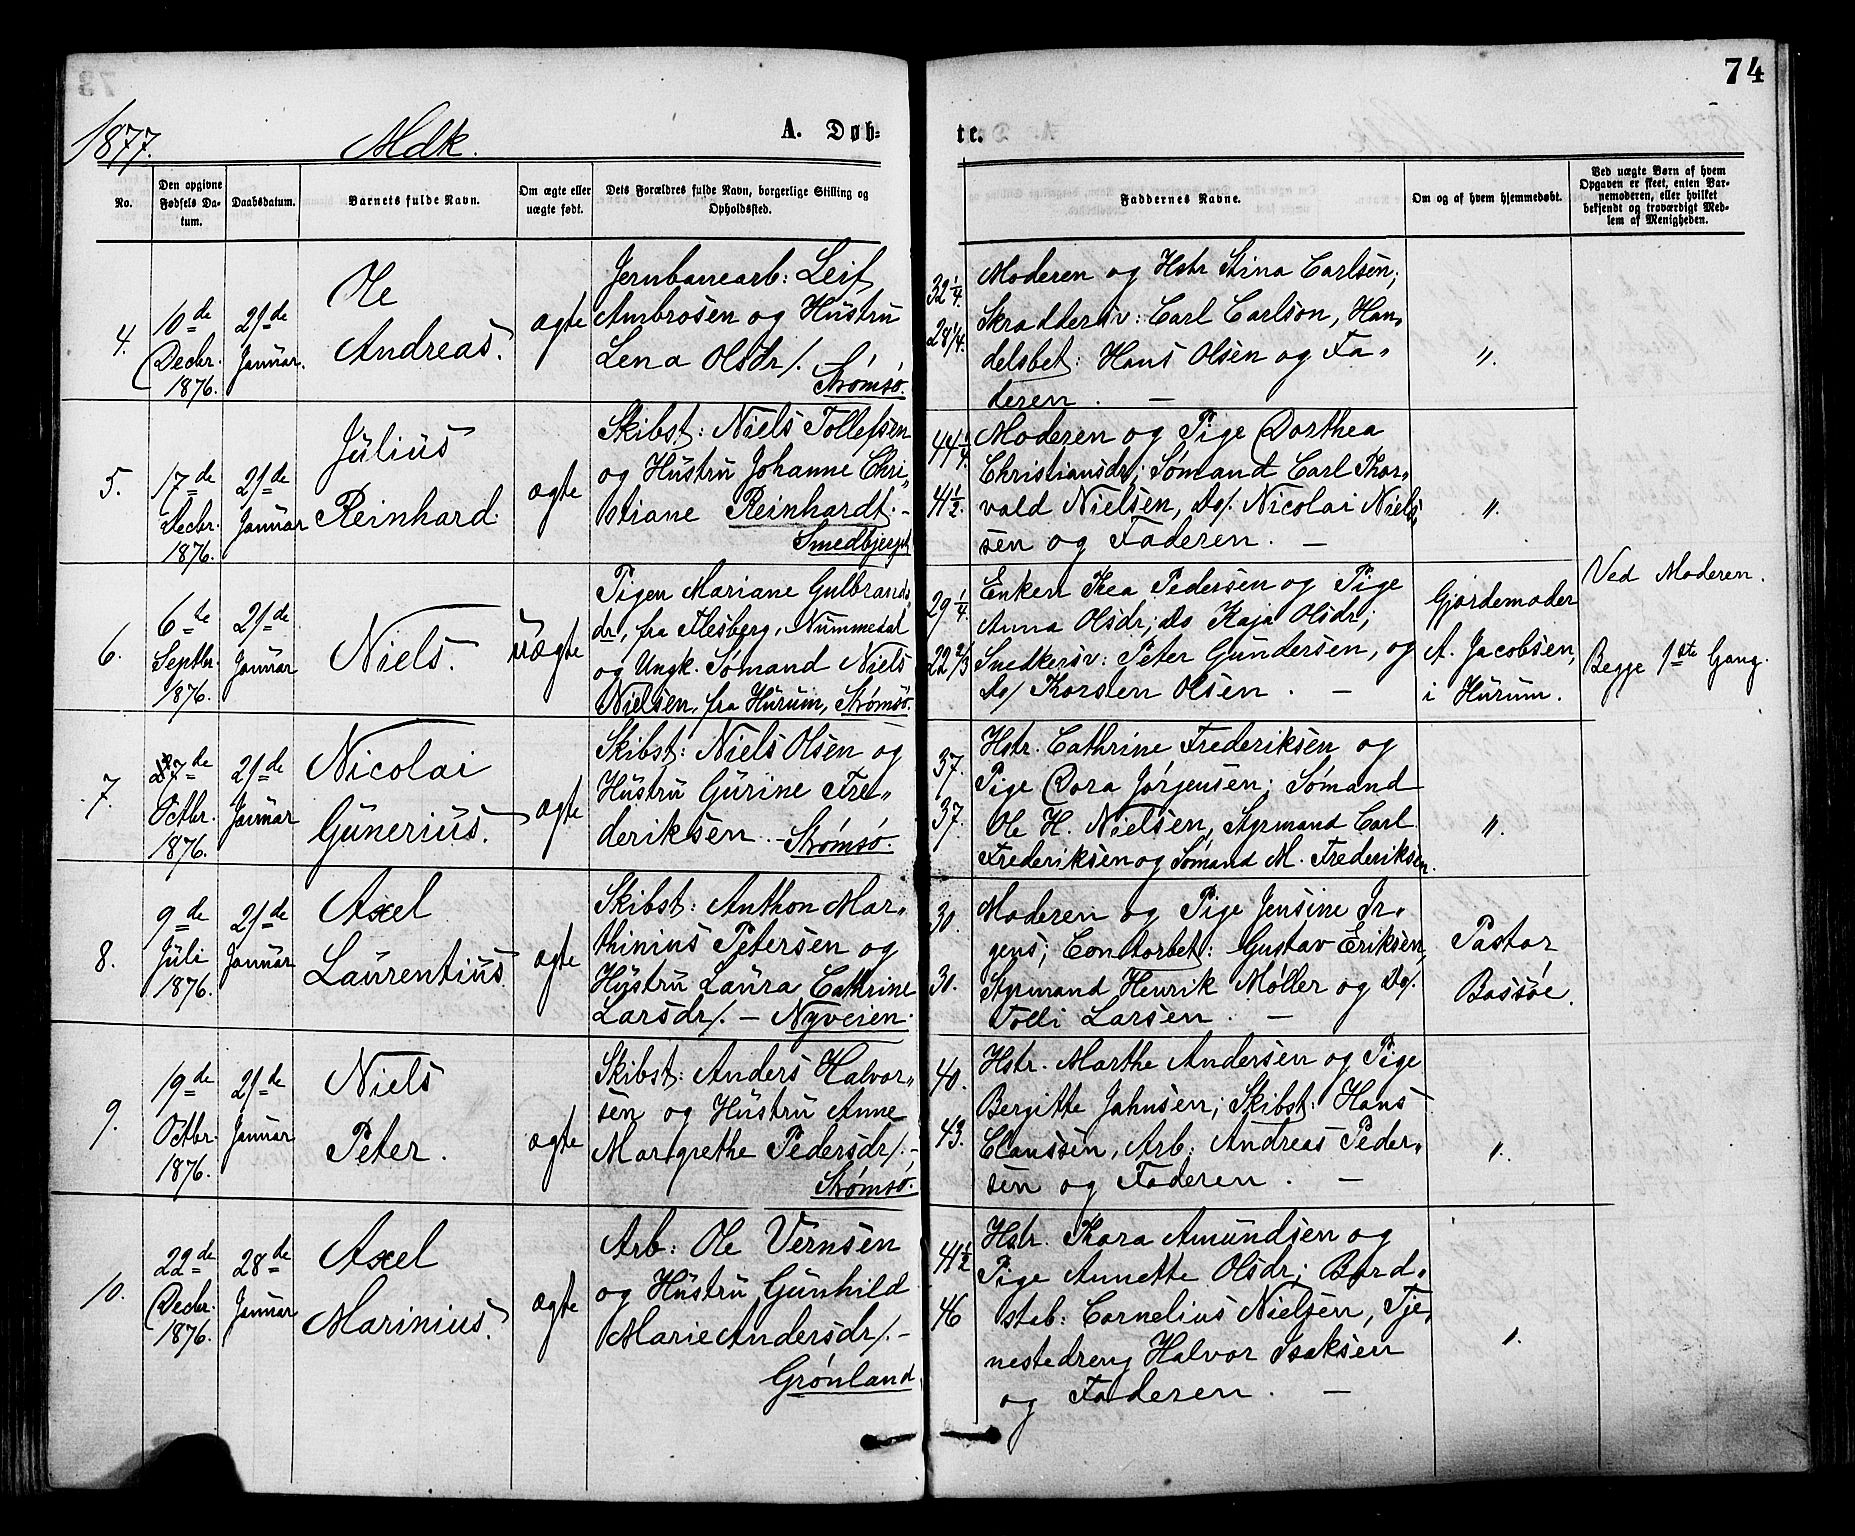 74
1877. Mdk. A. Døb-
te.
No.
Den opgivne
Fødsels Da-
tum.
Daabsdatum.
Barnets fulde Navn.
Om ægte eller
uægte født.
Dets Forældres fulde Navn, borgerlige Stilling og
Opholdssted.
Faddernes Navne.
Om og af hvem hjemmedøbt.
Ved uægte Børn af hvem
Opgaven er skeet, enten Bar-
nemoderen, eller hvilket
bekjendt og troværdigt Med-
lem af Menigheden.
4.
10de
Decbr.
1876.
21de
Januar.
Ole
Andreas.
ægte
Jernbanearb: Leif
Ambrosen og Hustru
Lena Olsdr/.
Strømsø.
32 1/4.
28 1/4.
Moderen og Hstr Stina Carlsen;
Skræddersv: Carl Carlson, Han-
delsbet: Hans Olsen og Fa-
deren. —
"
5.
17de
Decbr.
1876.
21de
Januar
Julius
Reinhard.
ægte
Skibst: Niels Tollefsen
og Hustru Johanne Chri-
stiane Reinhardt. -
Smedbjerget
44 1/4
41 1/2.
Moderen og Pige Dorthea
Christiansdr; Sømand Carl Thor-
vald Nielsen, Do/. Nicolai Niel-
sen og Faderen. —
"
6.
6te
Septbr.
1876.
21de
Januar
Niels.
uægte
Pigen Mariane Gulbrands
dr, fra Flesberg, Nummedal
og Ungk. Sømand Niels
Nielsen, fra Hurum, Strømsø.
29 1/4
22 2/3
Enken Thea Pedersen og Pige
Anna Olsdr; Do Kaja Olsdr;
Snedkersv: Peter Gundersen, og
Do/ Thorsten Olsen. —
Gjordemoder
A. Jacobsen,
i Hurum.
Ved Moderen.
Begge 1ste Gang.
7.
27de
Octbr.
1876.
21de
Januar
Nicolai
Gunerius.
ægte
Skibst: Niels Olsen og
Hustru Gurine Fre-
deriksen. - Strømsø.
37.
37.
Hstr. Cathrine Frederiksen og
Pige Dora Jørgensen; Sømand
Ole H. Nielsen, Styrmand Carl
Frederiksen og Sømand M. Frederiksen.
"
8.
9de
Juli
1876.
21de
Januar
Axel
Laurentius
ægte
Skibst: Anthon Mar-
thinius Petersen og
Hustru Laura Cathrine
Larsdr/. - Nyveien.
30.
30.
Moderen og Pige Jensine Jr-
gens; Contorbet: Gustav Eriksen,
Styrmand Henrik Møller og Do/.
Tolli Larsen. —
Pastor
Bassøe.
9.
19de
Octbr.
1876.
21de
Januar
Niels
Peter.
ægte
Skibst: Anders Halvor-
sen og Hustru Anne
Margrethe Pedersdr/. -
Strømsø.
40.
43.
Hstr. Marthe Andersen og Pige
Bergitte Jahnsen; Skibst: Hans
Clanssen, Arb: Andreas Peder-
sen og Faderen. —
"
10.
22de
Decbr.
1876.
28de
Januar
Axel
Marinius.
ægte
Arb: Ole Vernsen
og Hustru Gunhild
Marie Andersdr/. -
Grønland
41 1/2
46
Hstr. Thora Amundsen og
Pige Annette Olsdr; Bord-
stab: Cornelius Nielsen, Tje-
nestedreng Halvor Isaksen
og Faderen. —
"